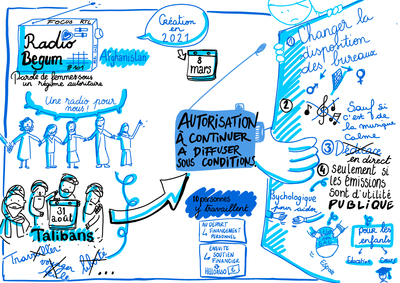 FOCUS RTL
Radio
Begum
Afghanistan
Parole de femmes sous
un régime autoritaire
Une radio pour
nous !
Création
en
2021
8
mars
31
août
Talibans
Travailler
AUTORISATION
À CONTINUER
A DIFFUSER
SOUS CONDITIONS
10 personnes
y travaillent
AU DÉPART
FINANCEMENT
PERSONNEL
ENSUITE
SOUTIEN
FINANCIER
HELLOASSO
€
① Changer la
disposition
des bureaux
② Sauf si
c'est de
la musique
calme
③ Dédicace
en direct
④ seulement si
les émissions
sont d'utilité
PUBLIQUE
Psychologique
pour aider
pour les
enfants
Éducative